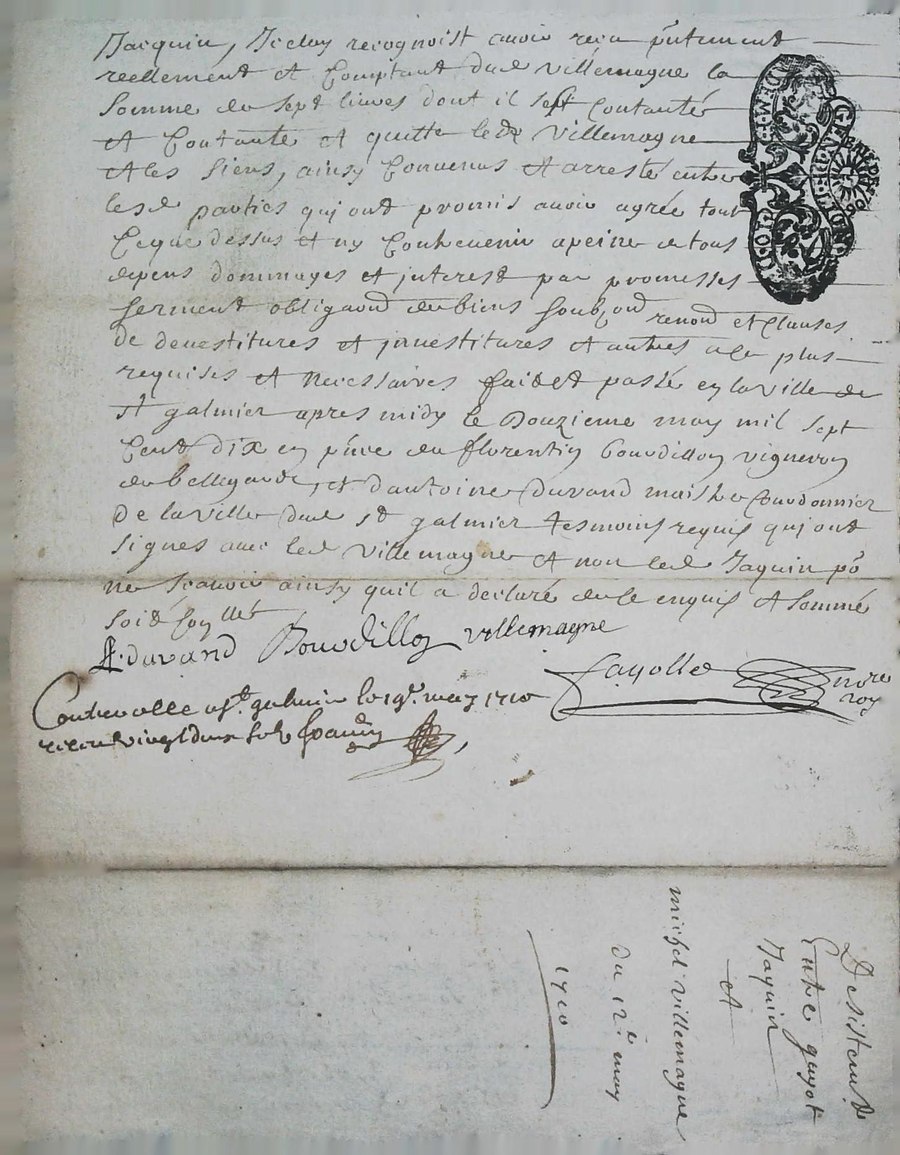 Jacquin, Iceluy recognoist avoir receu p̃ntement
reellement et Comptant dud villemagne la
Somme de sept livres dont il sest Contanté
et Contante et quitte led villemagne
et les siens, ainsy Convenus et arresté entre
lesd parties qui ont promis avoir agréé tout
Ceque dessus et ny Contrevenir apeine de tous
depens dommages et interest par promesses
serment obligaon̄ de biens soubzon̄ renon̄ et Clauses
de devestitures et investitures et autres ale plus
requises et necessaires faict et passé en la ville de
st galmier apres midy le Douzieme may mil sept
Cent dix en p̃nce de florentin Bourdillon vigneron
de bellegarde, et dantoine durand maistre Cordonnier
De la ville dud st galmier tesmoins requis qui ont
signes avec led villemagne et non led Jaquin po
ne scavoir ainsy quil a declaré de ce enquis et sommé
soit scellé
A. durand Bourdillon villemagne
fayolle no.re roy
Contrerolle a st galmier le 19e may 1710
receu vingt deux sols
Desistement
Entre guyot
Jaquin
et
michel villemagne
du 12e may
1710